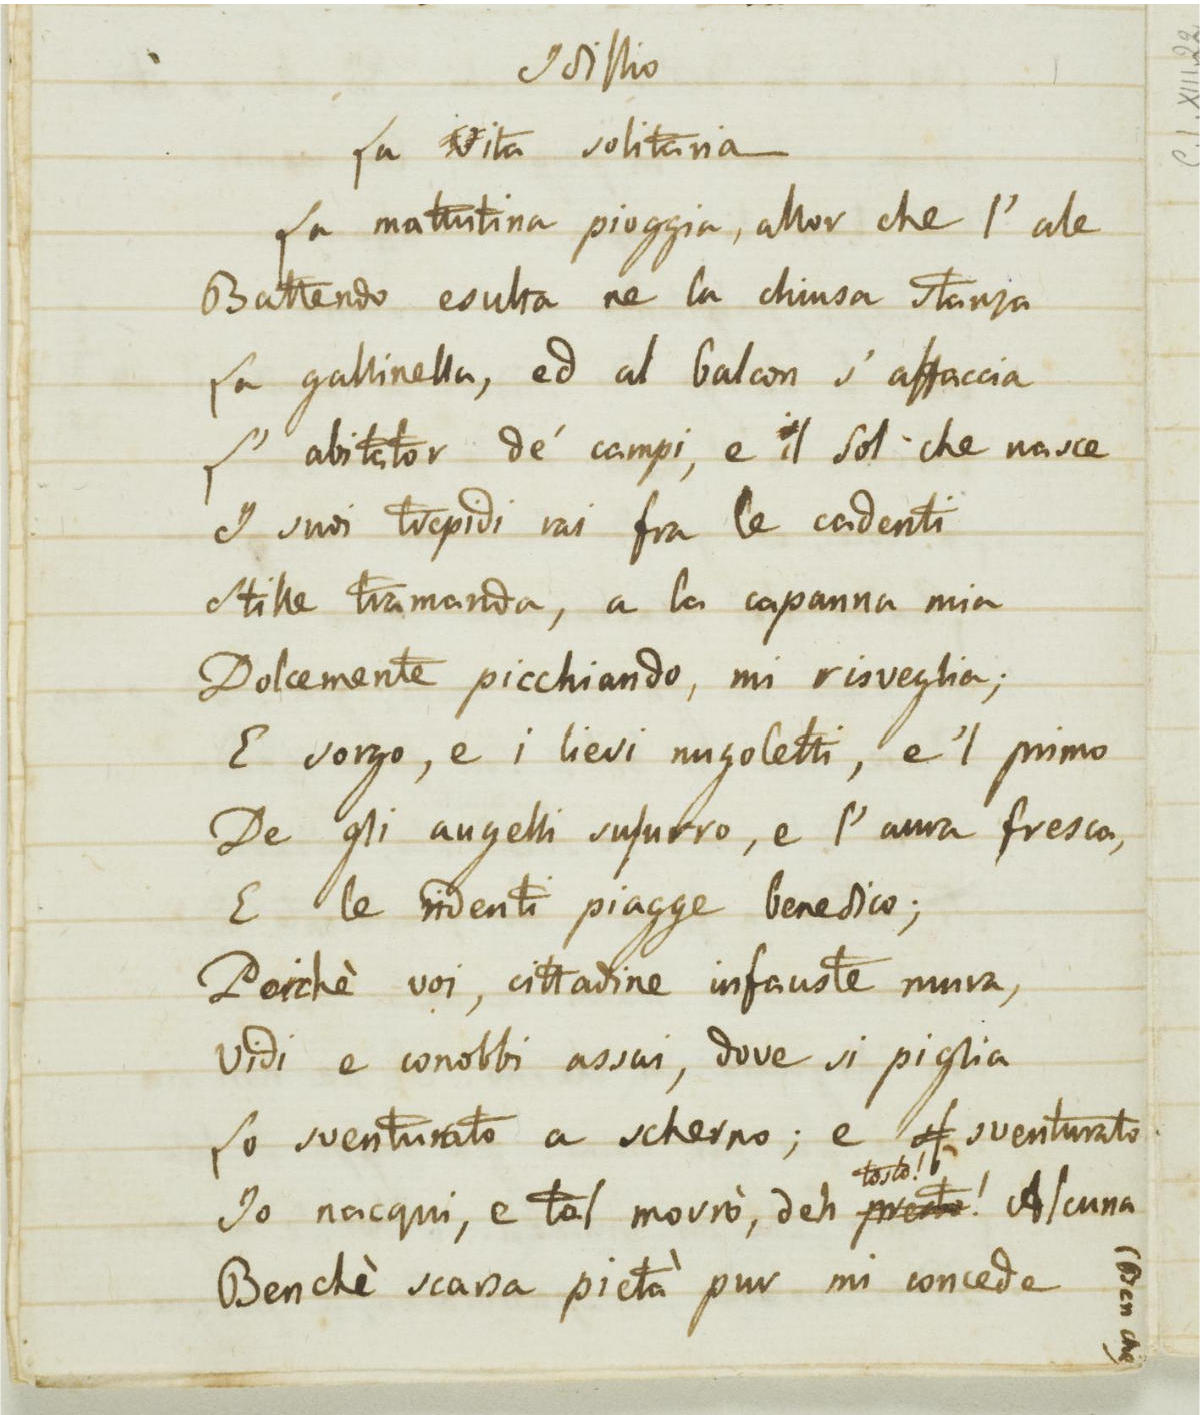 Idillio
La Vita solitaria
La mattutina pioggia, allor che l' ale
Battendo esulta ne la chiusa stanza
La gallinella, ed al balcon s' affaccia
L' abitator de' campi, e il Sol che nasce
I suoi trepidi rai fra le cadenti
Stille tramanda, a la capanna mia
Dolcemente picchiando, mi risveglia;
E sorgo, e i lievi nugoletti, e 'l primo
De gli augelli susurro, e l' aura fresca,
E le ridenti piagge benedico;
Poichè voi, cittadine infauste mura,
Vidi e conobbi assai, dove si piglia
Lo sventurato a scherno; e sventurato
tosto!
Io nacqui, e tal morrò, deh presto! Alcuna
Benchè scarsa pietà pur mi concede
(Ben che
C.L.XIII.22